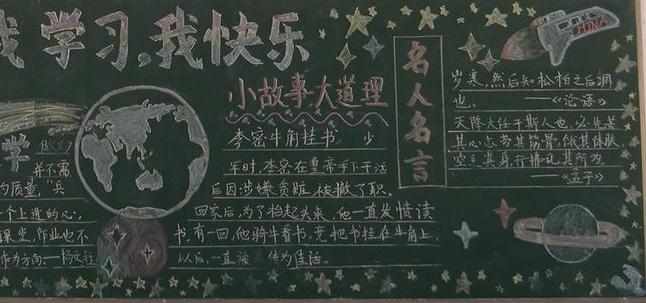 我学习,我快乐
学
并不需
质量,"兵
个上进的心,
作业也不
方向.
小故事大道理
李密牛角挂书 少
年时,李密在皇帝手下干活
后因涉嫌贪赃,被撤了职.
回家后,为了抬起头来,他一直发愤读
书.有一回,他骑牛看书,竟把书挂在牛角上.
以后,一直 传为佳话.
名人名言
岁寒,然后知松柏之后凋
也. ——《论语》
天降大任于斯人也,必先苦
其心志,劳其筋骨,饿其体肤
空乏其身,行拂乱其所为
——《孟子》